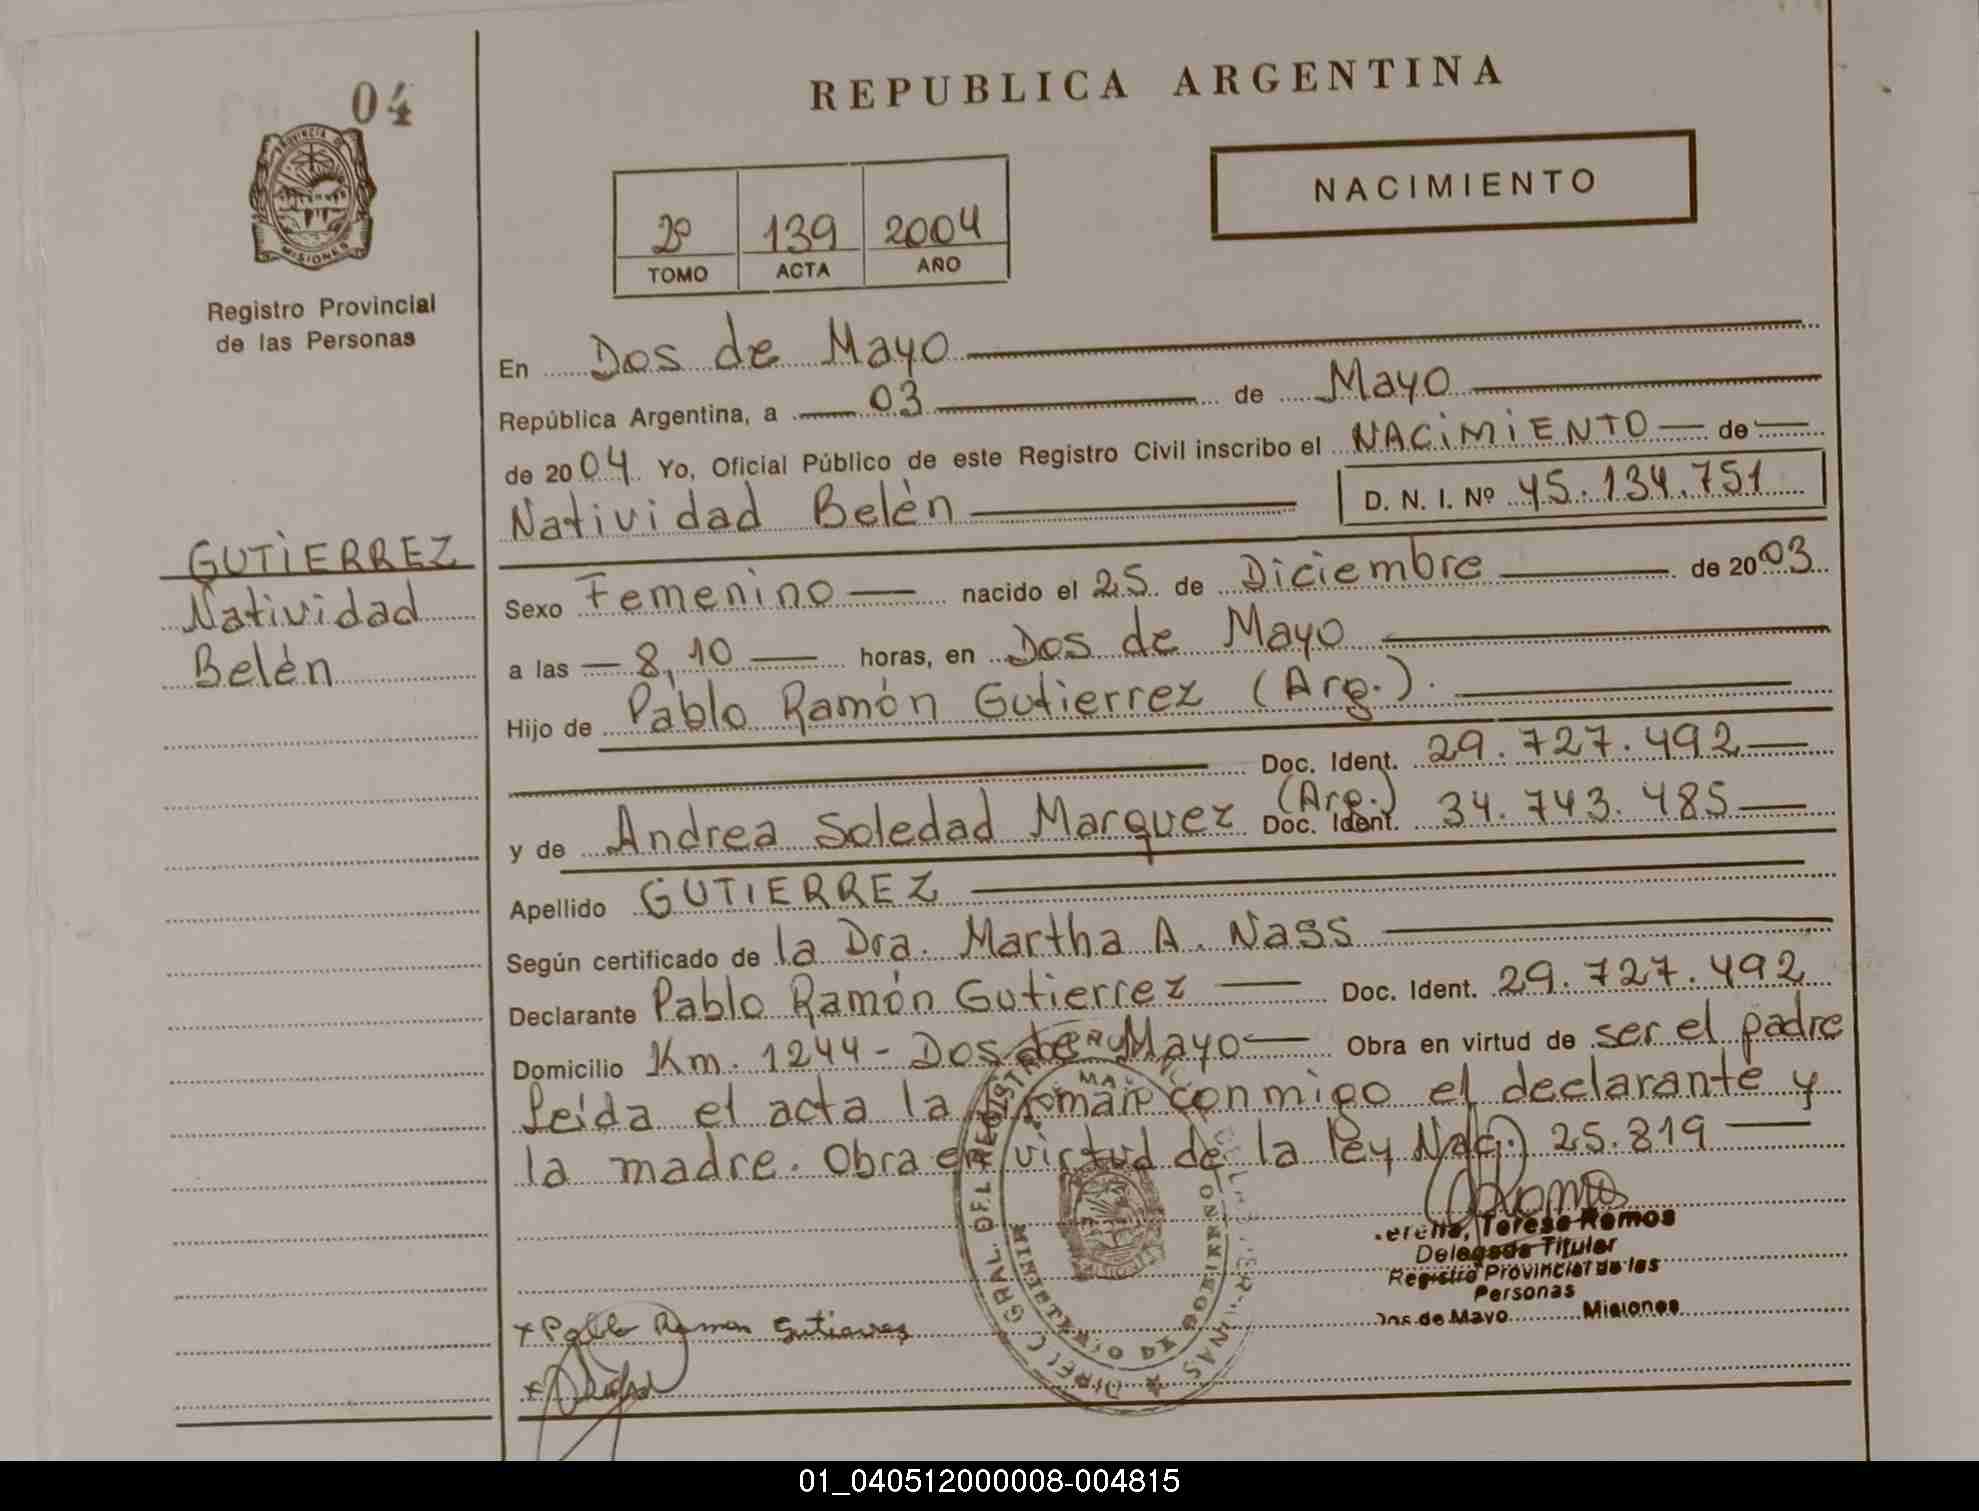 04
PROVINCIA DE
MISIONES
Registro Provincial
de las Personas
GUTIERREZ
Natividad
Belén
REPUBLICA ARGENTINA
NACIMIENTO
2º 139 2004
TOMO ACTA AÑO
En Dos de Mayo
República Argentina, a 03 de Mayo
de 2004 Yo, Oficial Público de este Registro Civil inscribo el NACIMIENTO de
Natividad Belén D. N. I. Nº 45.134.751
Sexo Femenino nacido el 25 de Diciembre de 2003
a las 8,10 horas, en Dos de Mayo
Hijo de Pablo Ramón Gutierrez (Arg.).
Doc. Ident. 29.727.492
y de Andrea Soledad Marquez (Arg.) Doc. Ident. 34.743.485
Apellido GUTIERREZ
Según certificado de la Dra. Martha A. Nass
Declarante Pablo Ramón Gutierrez Doc. Ident. 29.727.492
Domicilio Km. 1244 - Dos de Mayo Obra en virtud de ser el padre
Leída el acta la firman conmigo el declarante y
la madre. Obra en virtud de la ley Nac. 25.819
Teresa Ramos
Delegada Titular
Registro Provincial de las
Personas
Dos de Mayo Misiones
x Pablo Ramon Gutierres
GRAL. DEL REGISTR
GOBIERNO
01_040512000008-004815